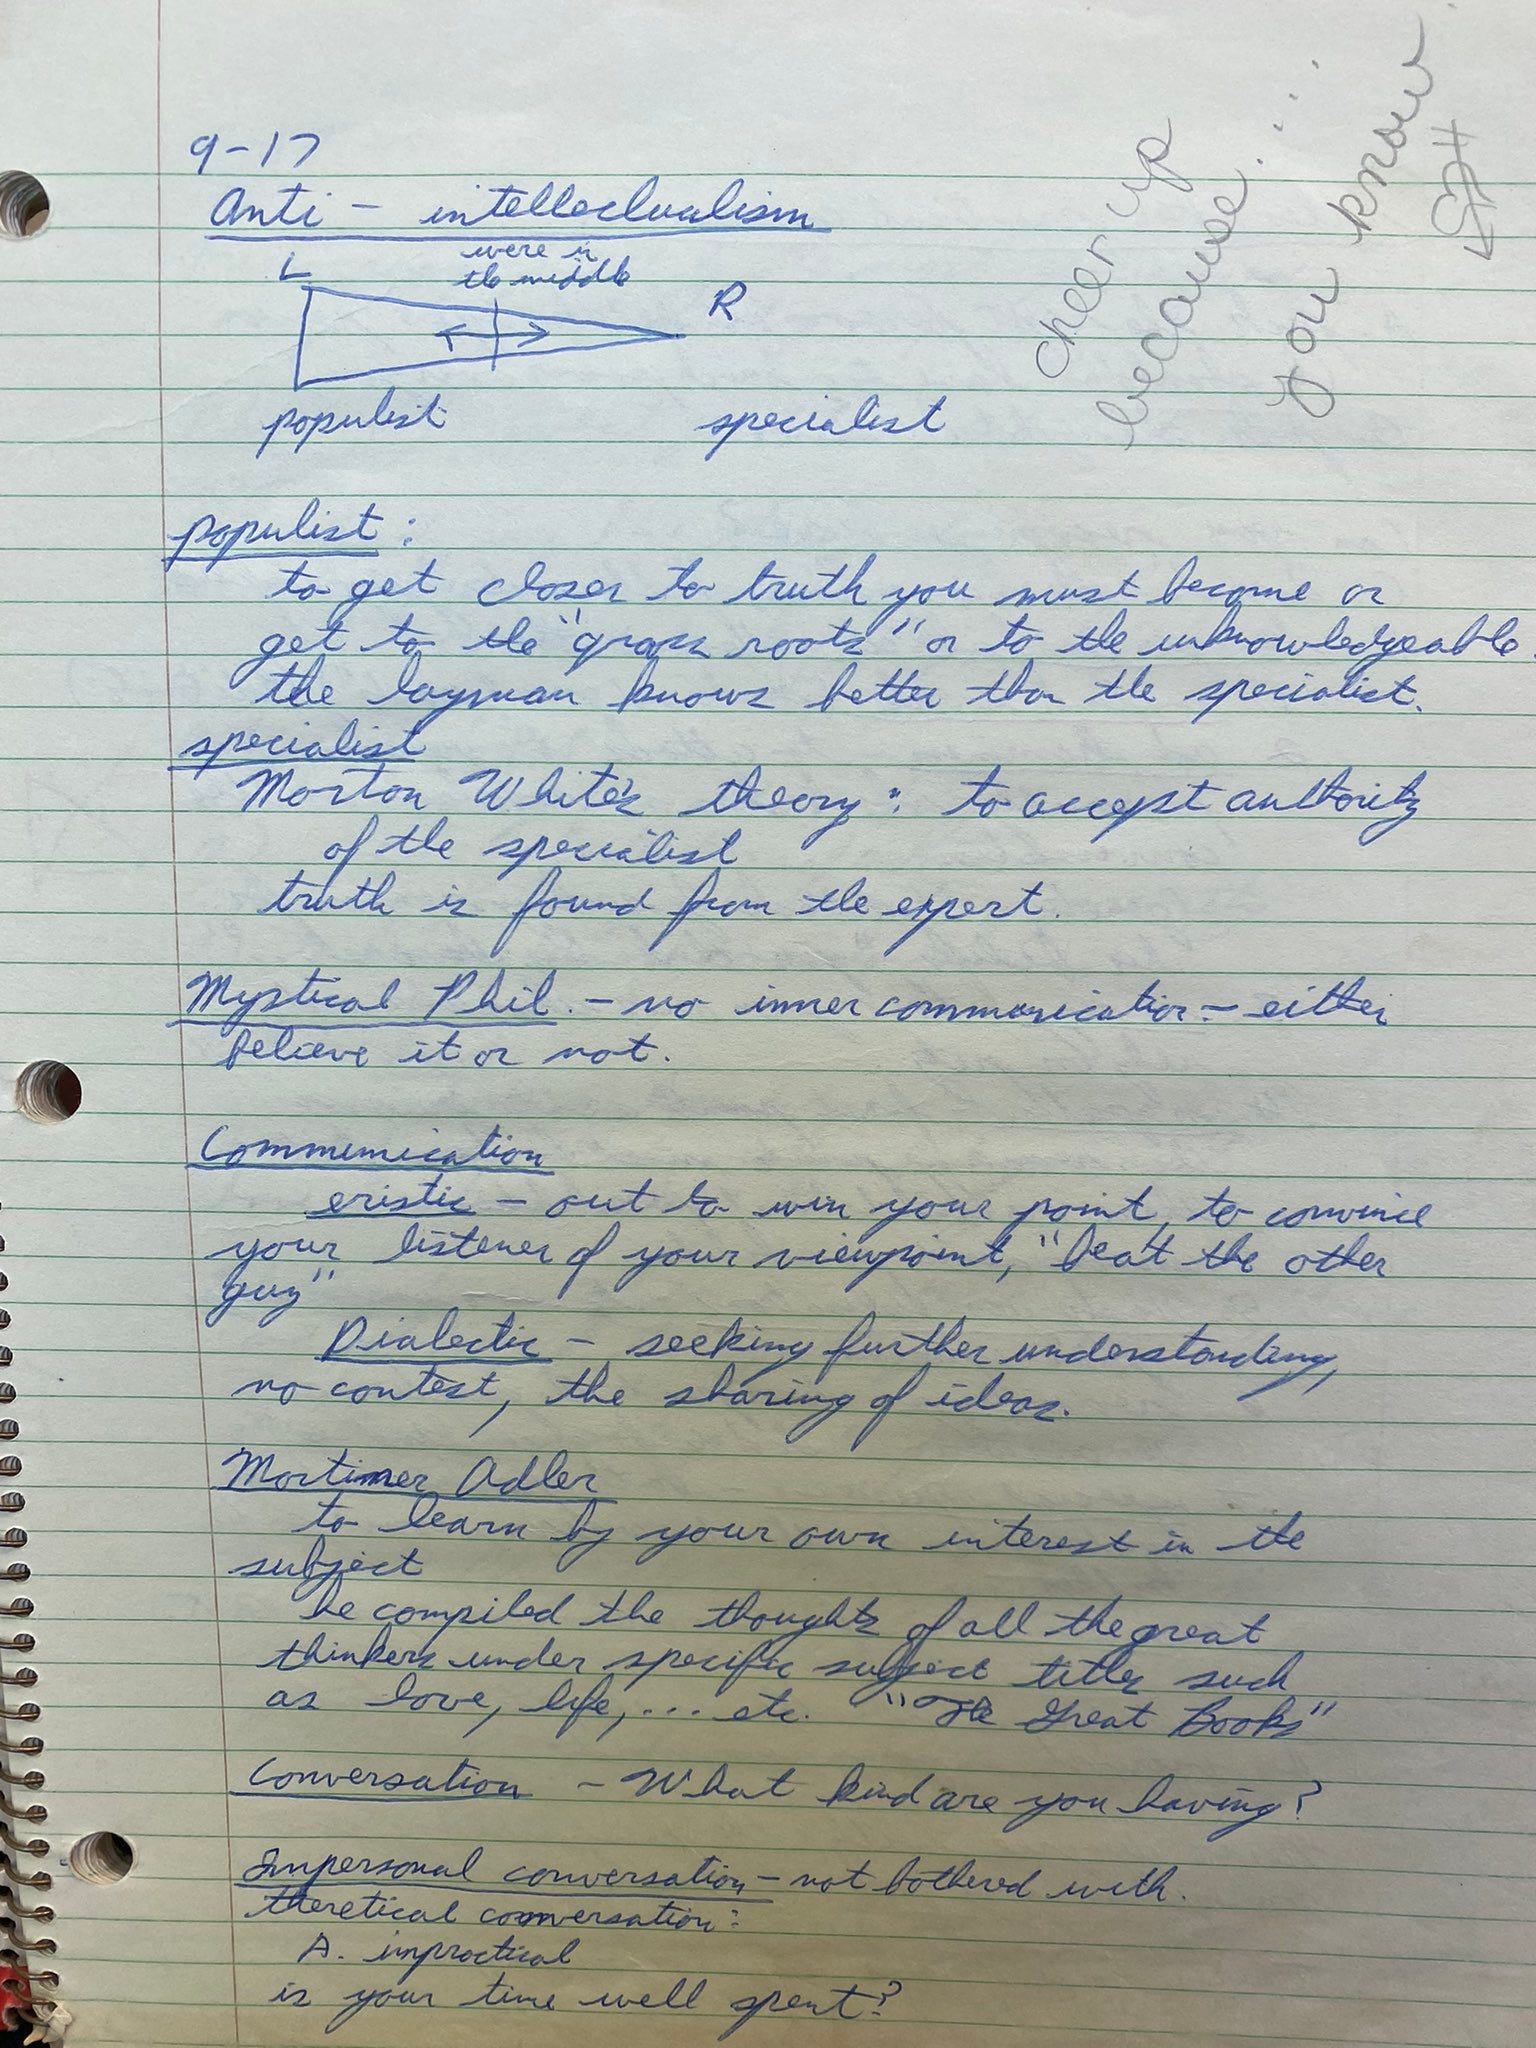 9-17
Anti - intellectualism
were in
the middle
L
R
populist
specialist
cheer up
because...
you know
populist:
to get closer to truth you must become or
get to the "grass roots" or to the unknowledgeable.
the layman knows better than the specialist.
specialist
Morton White's theory: to accept authority
of the specialist
truth is found from the expert.
Mystical Phil. - no inner communication - either
believe it or not.
Communication
eristic - out to win your point, to convince
your listener of your viewpoint, "beat the other
guy"
Dialectic - seeking further understanding,
no contest, the sharing of ideas.
Mortimer Adler
to learn by your own interest in the
subject
he compiled the thoughts of all the great
thinkers under specific subject titles such
as love, life, ... etc. "The Great Books"
Conversation - What kind are you having?
Impersonal conversation - not bothered with.
theretical conversation:
A. impractical
is your time well spent?